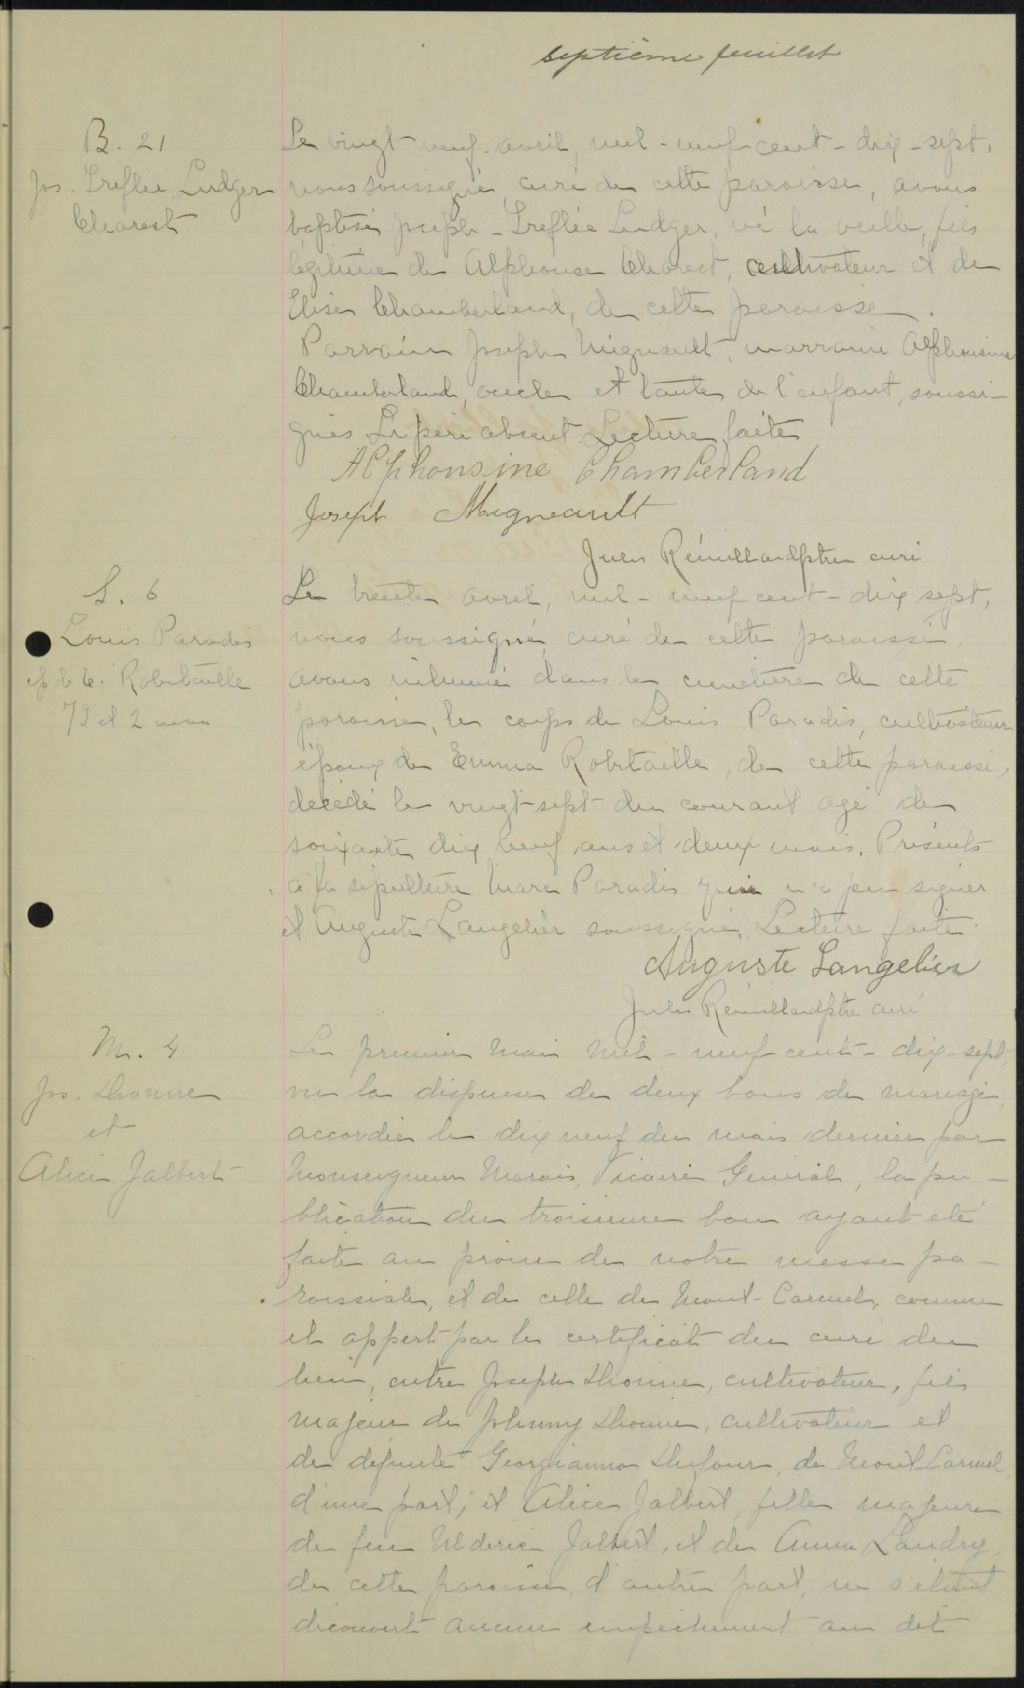 septième feuillet
B. 21
Jos. Trefflée Ludger
Charest
Le vingt-neuf avril, mil-neuf cent-dix-sept,
nous soussigné, curé de cette paroisse, avons
baptisé Joseph-Trefflée Ludger, né la veille, fils
légitime de Alphonse Charest, cultivateur et de
Elise Chamberland, de cette paroisse.
Parrain Joseph Migneault, marraine Alphonsine
Chamberland, oncle et tante de l'enfant, soussi-
gnés. Le père absent. Lecture faite
Alphonsine Chamberland
Joseph Migneault
Jules Rémillard ptre curé
S. 6
Louis Paradis
ép. de E. Robitaille
79 et 2 mois
Le trente avril, mil-neuf cent-dix sept,
nous soussigné, curé de cette paroisse,
avons inhumé dans le cimetière de cette
paroisse, le corps de Louis Paradis, cultivateur
époux de Emma Robitaille, de cette paroisse,
décédé le vingt-sept du courant agé de
soixante dix neuf ans et deux mois. Présents
à la sépulture Marc Paradis qui n'a pu signer
et Auguste Langelier soussigné. Lecture faite.
Auguste Langelier
Jules Rémillard ptre curé
M. 4
Jos. Dionne
et
Alice Jalbert
Le premier Mai Mil-neuf cent-dix-sept,
vu la dispense de deux bans de mariage
accordée le dix neuf du mois dernier par
Monseigneur Marois, Vicaire Général, la pu-
blication du troisième ban ayant été
faite au prône de notre messe pa-
roissiale, et de celle de Mont-Carmel, comme
il appert par le certificat du curé du
lieu, entre Joseph Dionne, cultivateur, fils
majeur de Johnny Dionne, cultivateur et
de défunte Georgianna Dufour, de Mont Carmel,
d'une part; et Alice Jalbert, fille majeure
de feu Ulderic Jalbert, et de Anna Landry,
de cette paroisse, d'autre part, ne s'étant
découvert aucun empêchement au dit